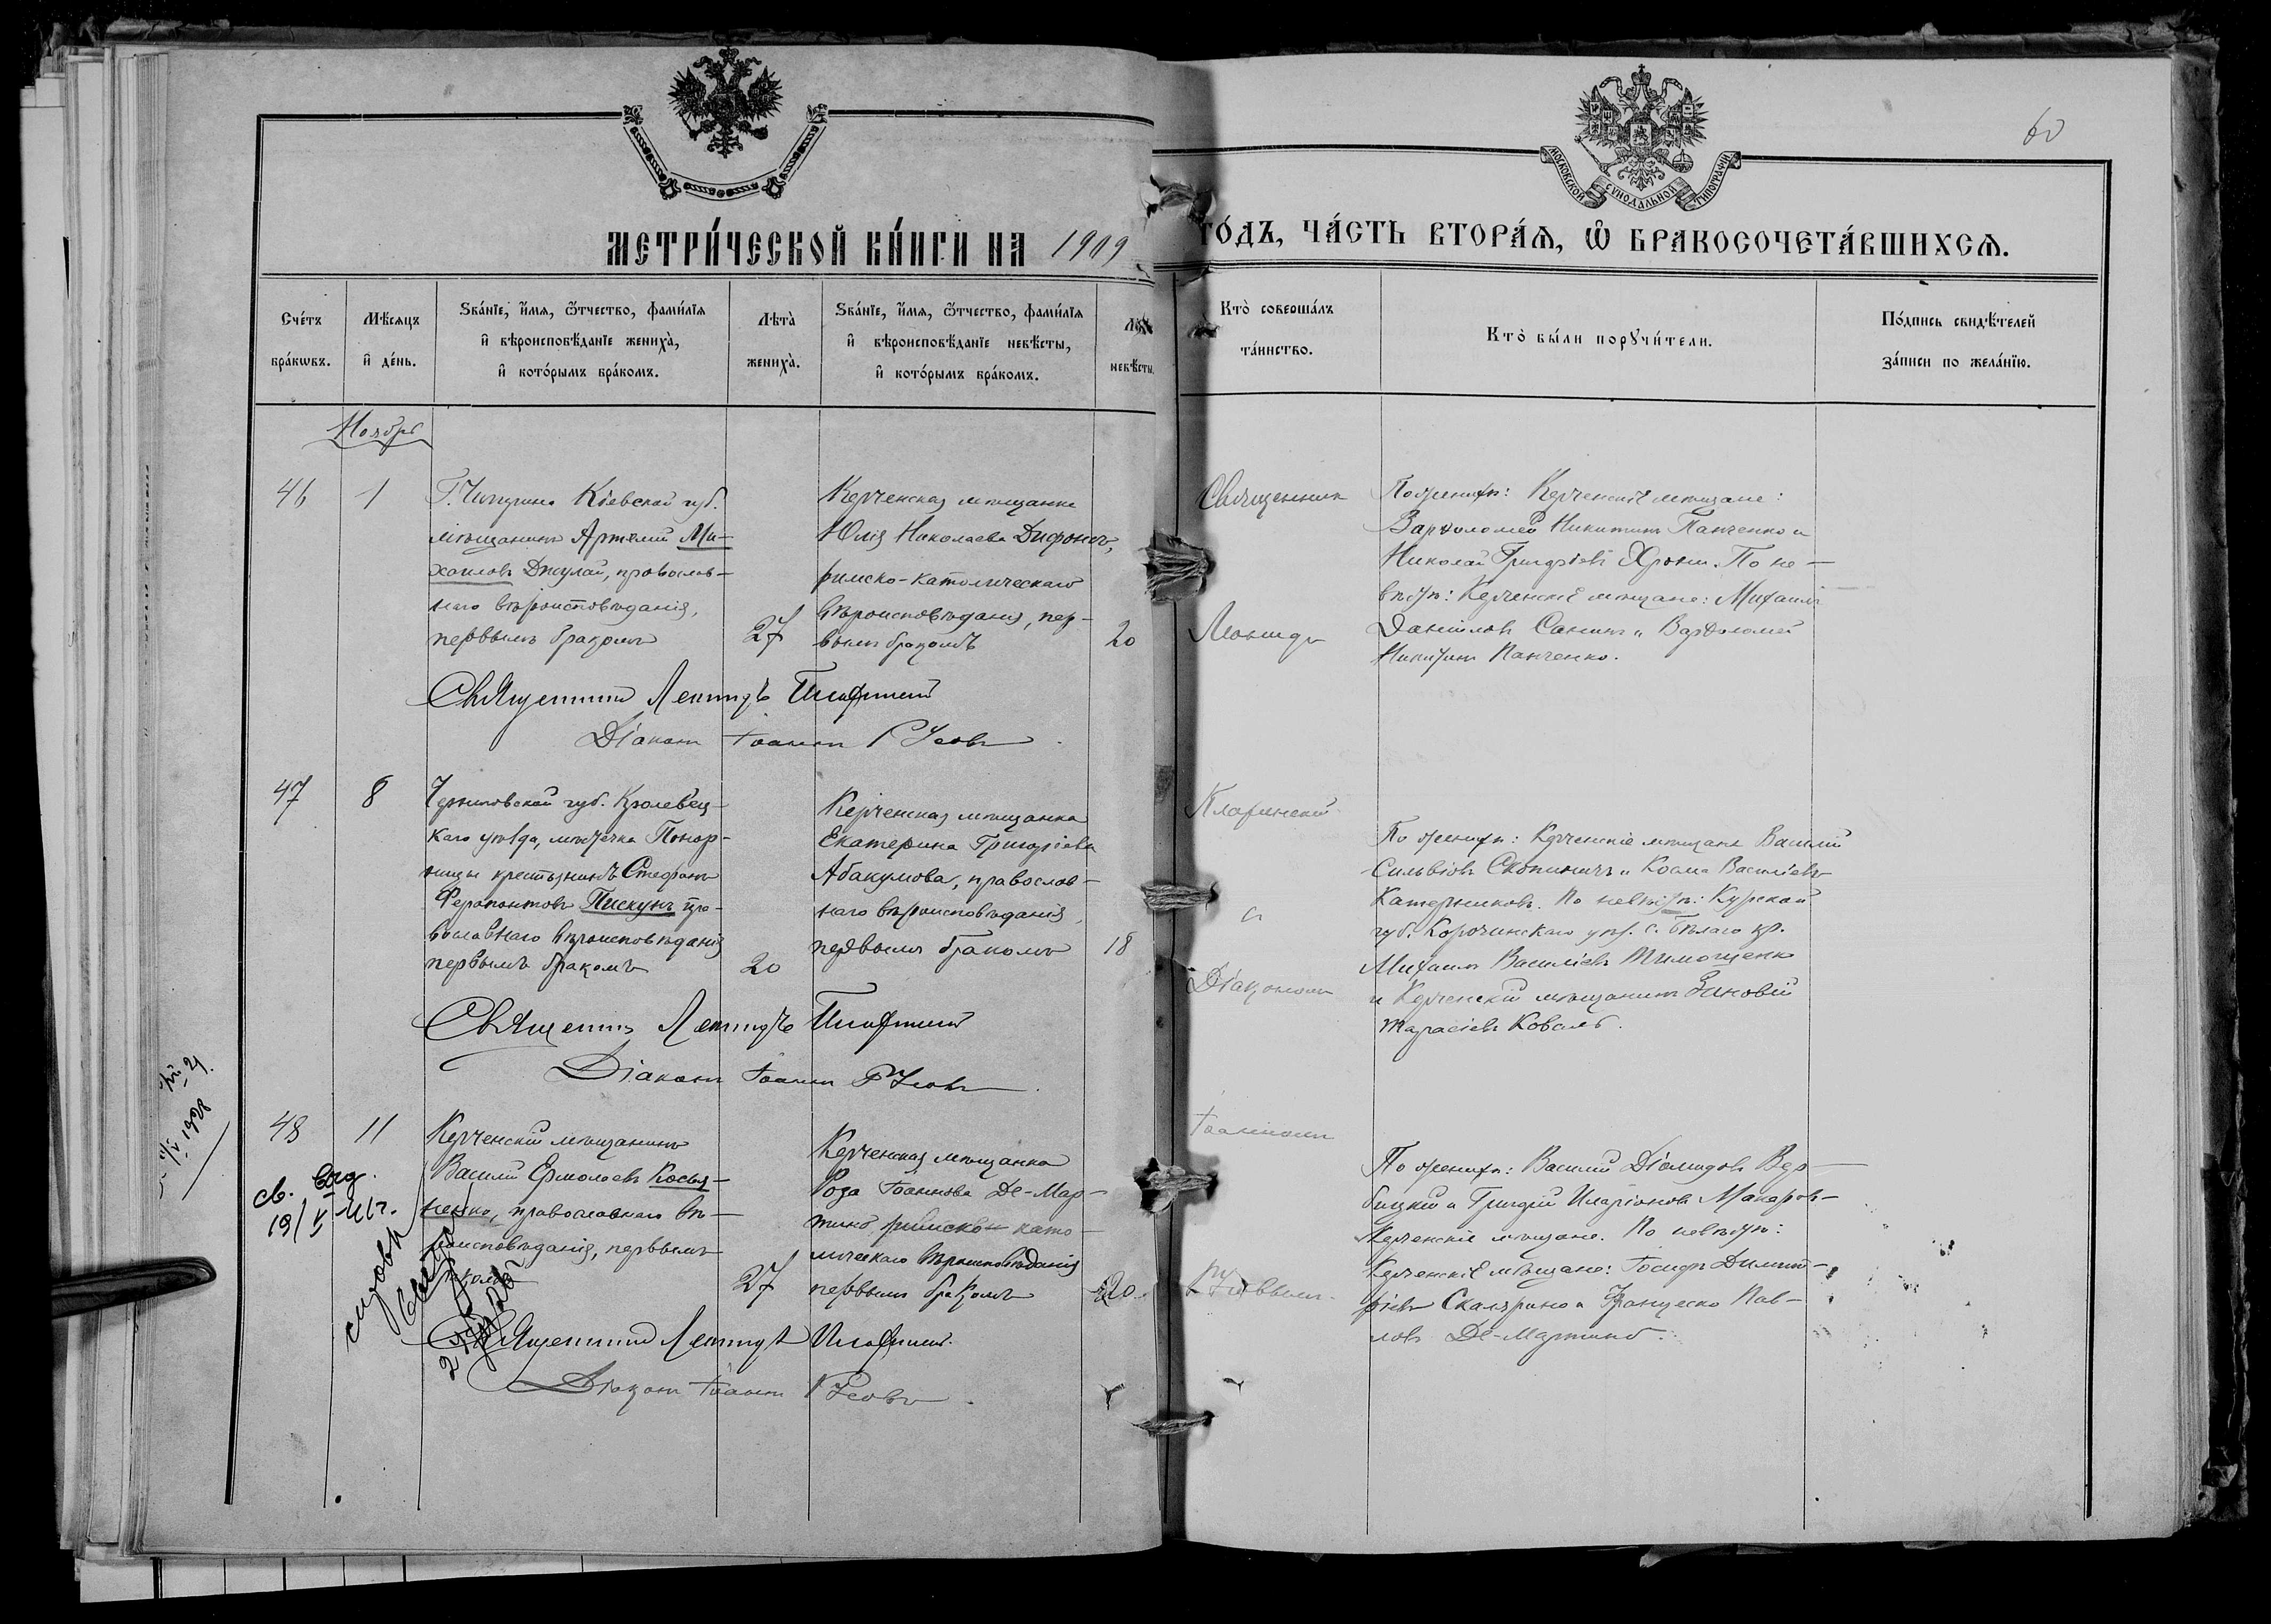 60
МОСКОВСКОЙ СѴНОДАЛЬНОЙ ТИПОГРАФІИ
МЕТРИ́ЧЕСКОЙ КНИ́ГИ НА 1909 ГО́ДЪ, ЧА́СТЬ ВТОРА́Ѧ, Ѽ БРАКОСОЧЕТА́ВШИХСѦ.
Сче́тъ бра́кѡвъ.
Мѣ́сяцъ и҆ де́нь.
Ѕва́нїе, и҆́мѧ, ѻ҆́тчество, фами́лїѧ и҆ вѣроисповѣ́данїе жениха̀, и҆ кото́рымъ бра́комъ.
Лѣта̀ жениха̀.
Ѕва́нїе, и҆́мѧ, ѻ҆́тчество, фами́лїѧ и҆ вѣроисповѣ́данїе невѣ́сты, и҆ кото́рымъ бра́комъ.
невѣ́сты.
Кто̀ соверша́лъ та́инство.
Кто̀ бы́ли порꙋчи́тели.
По́дпись свидѣ́телей за́писи по жела́нїю.
Ноябрь
46
1
Г. Чигирина Кіевской губ.
мѣщанинъ Артемій Ми-
хаиловъ Джулай, православ-
наго вѣроисповѣданія,
первымъ бракомъ
27
Керченская мѣщанка
Юлія Николаева Дифонсъ,
римско-католическаго
вѣроисповѣданія, пер-
вымъ бракомъ
20
Священникъ
Леонидъ
По женихѣ: Керченскіе мѣщане:
Варѳоломей Никитинъ Панченко и
Николай Григорьевъ Хрони. По не-
вѣстѣ: Керченскіе мѣщане: Михаилъ
Даніиловъ Санинъ и Варѳоломей
Никитинъ Панченко.
Священникъ Леонидъ
Діаконъ Іоаннъ Русовъ
47
8
Черниговской губ. Кролевец-
каго уѣзда, мѣстечка Понор-
ницы крестьянинъ Стефанъ
Ферапонтовъ Пискунъ пра-
вославнаго вѣроисповѣданія
первымъ бракомъ
20
Керченская мѣщанка
Екатерина Григорьева
Абакумова, православ-
наго вѣроисповѣданія,
первымъ бракомъ
18
и
Діакономъ
По женихѣ: Керченскіе мѣщане Василій
Сильвіовъ Скопиничъ и Косма Василіевъ
Катержиковъ. По невѣстѣ: Курской
губ. Корочинскаго уѣз. с. Бѣлаго кр.
Михаилъ Василіевъ Тимошенко
и Керченскій мѣщанинъ Зиновій
Тарасіевъ Коваль.
Священникъ Леонидъ
Діаконъ Іоаннъ Русовъ
48
11
Керченскій мѣщанинъ
Василій Ермолаевъ Косья-
ненко, православнаго вѣ-
роисповѣданія, первымъ
27
Керченская мѣщанка
Роза Іоаннова Де-Мар-
тино римско-като-
лическаго вѣроисповѣданія
первымъ бракомъ
20
Іоанномъ
Русовымъ
По женихѣ: Василій Діомидовъ Вер-
бицкій и Григорій Иларіоновъ Макаров-
Керченскіе мѣщане. По невѣстѣ:
Керченскіе мѣщане: Іосифъ Димит-
ріевъ Скалярино и Франческо Пав-
ловъ Де-Мартино.
Священникъ Леонидъ
Діаконъ Іоаннъ Русовъ
1928
19/V